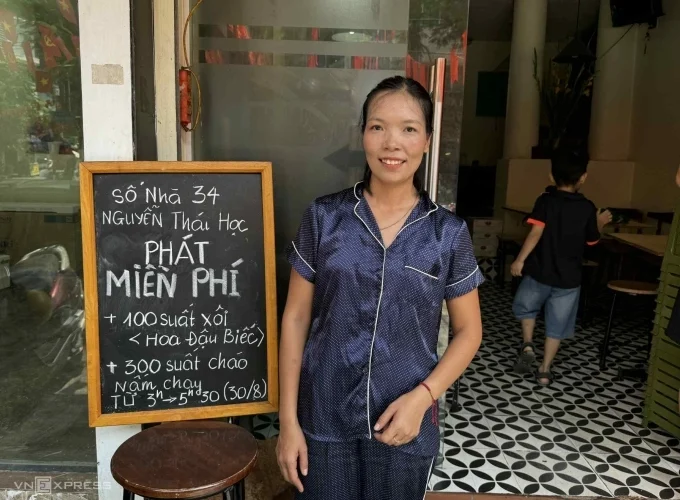 Số Nhà 34
NGUYỄN Thái Học
PHÁT
MIỄN PHÍ
+ 100 suất xôi
< Hoa Đậu Biếc>
+ 300 suất cháo
Nấm chay
Từ 3h → 5h30 (30/8)
VNEXPRESS